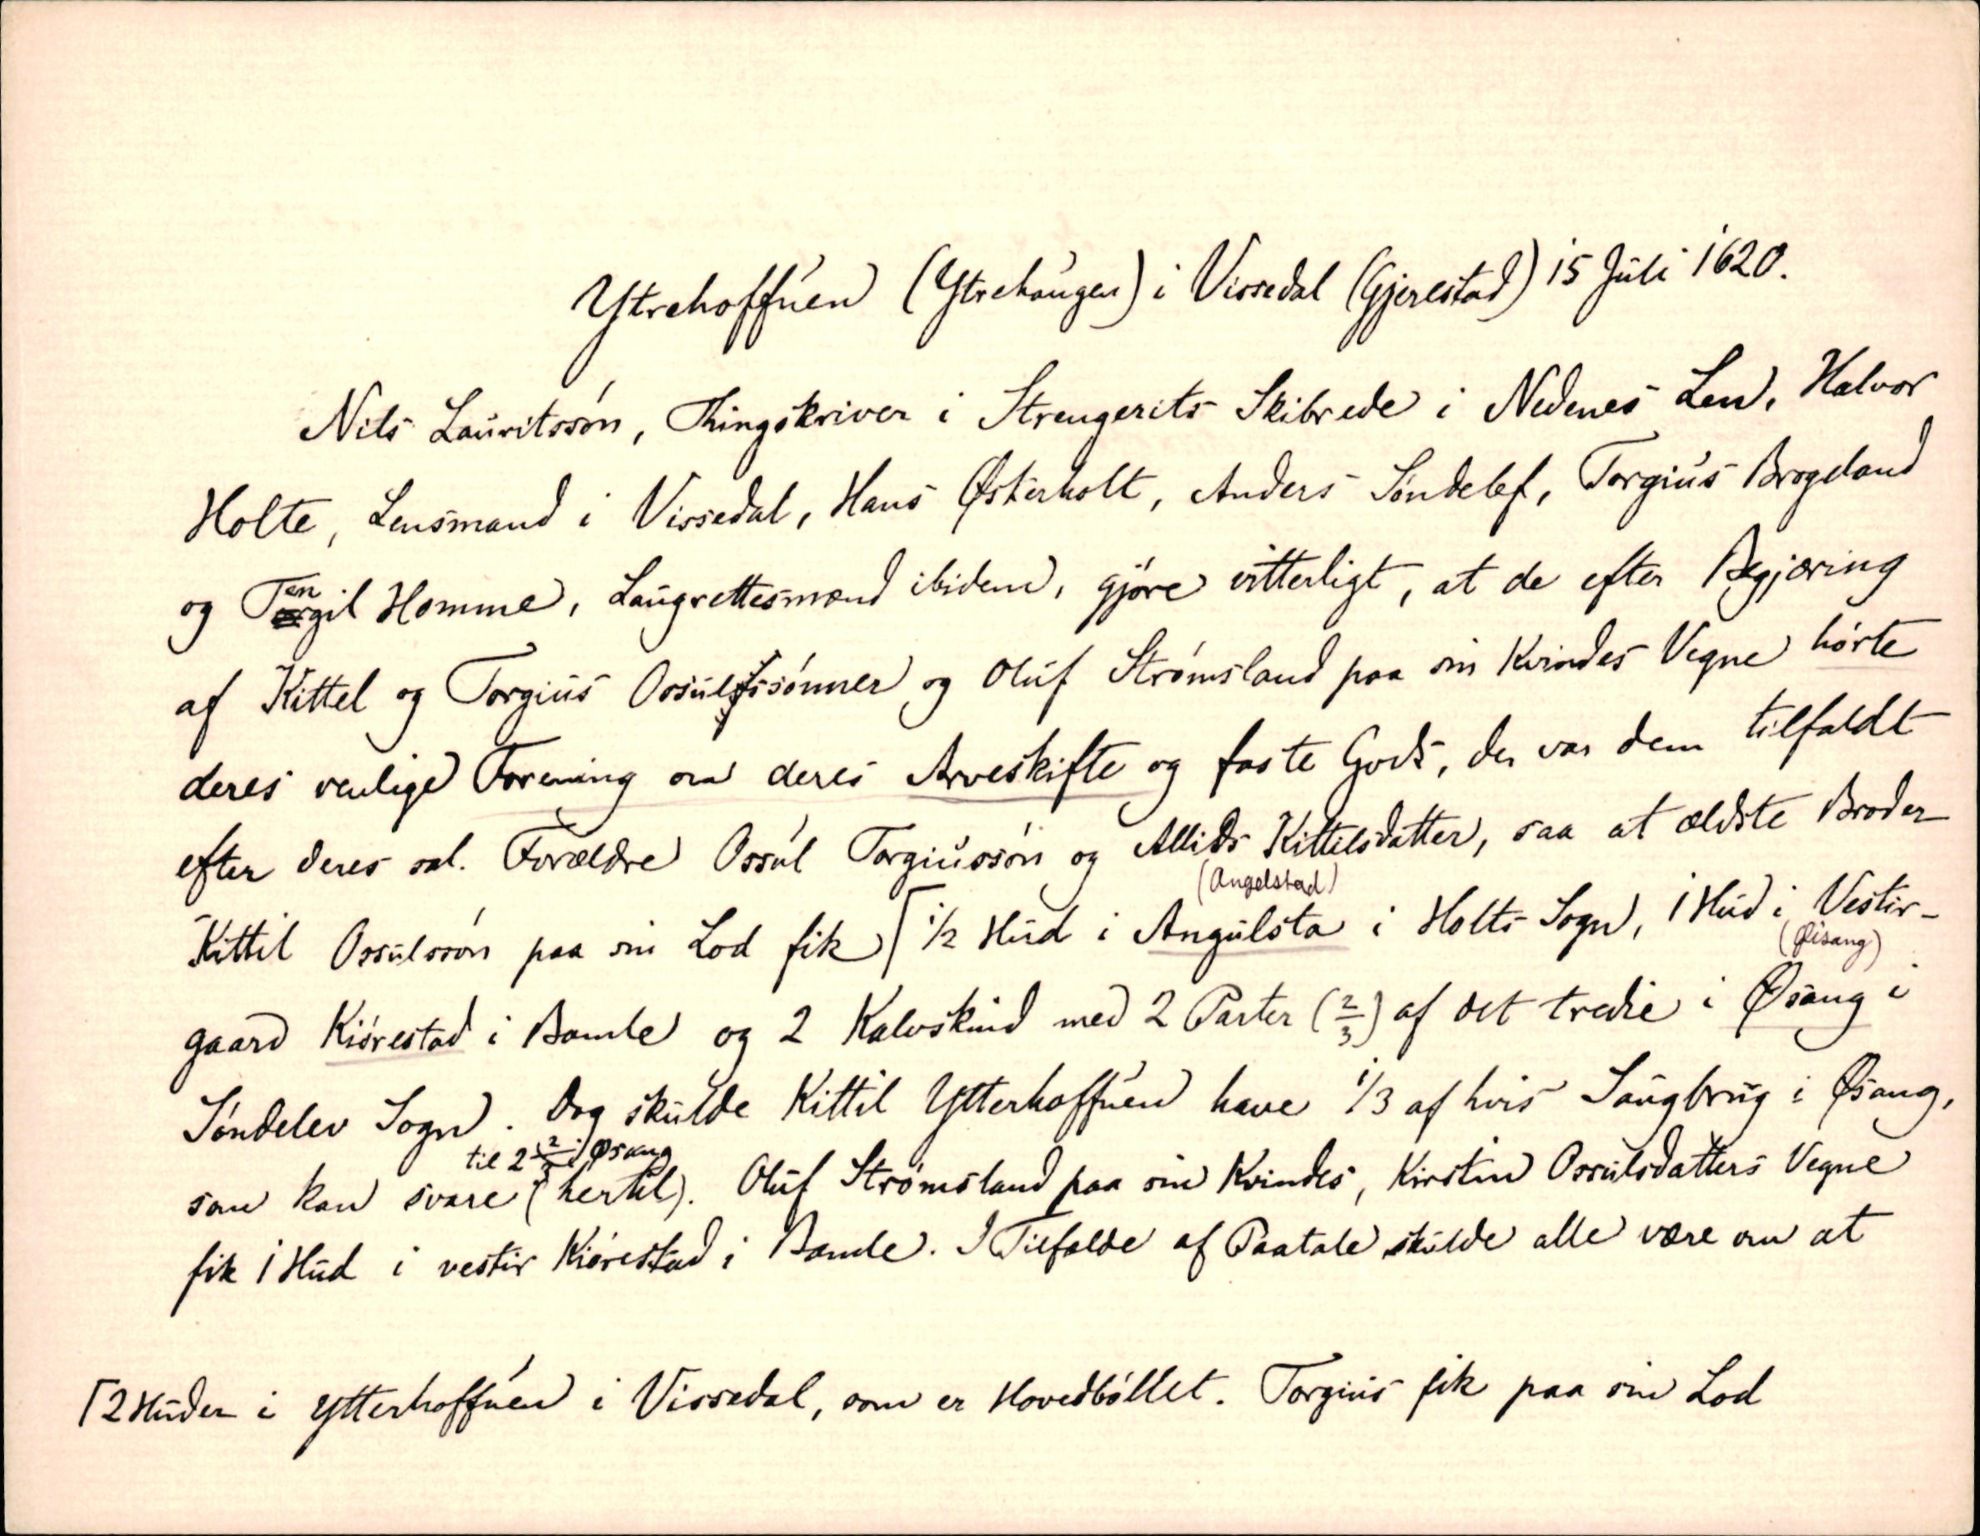 Ytrehoffúen (Ytrehaúgen) i Vissedal (Gjerestad) 15 Júli 1620.
Nils Laúritssøn, Thingskriver i Strengereits Skibrede i Nedenes Len, Halvor
Holte, Lensmand i Vissedal, Hans Østerholt, Anders Søndelef, Torgiús Brogeland
og Tengil Homme, Laúgrettesmænd ibidem, gjøre vitterligt, at de efter Begjæring
af Kittel og Torgiús Ossúlfssønner og Olúf Strømsland paa sin Kvindes Vegne hørte
deres venlige Forening om deres Arveskifte og faste Gods, der var dem tilfaldt
efter deres sal. Forældre Ossúl Torgiússøn og Allids Kittilsdatter, saa at ældste Broder
(Angelstad)
Kittil Ossúlssøn paa sin Lod fik ⌈ 1/2 Húd i Angúlsta i Holts Sogn, 1 Húd i Vestir-
(Øisang)
gaard Kiørestad i Bamle og 2 Kalvskind med 2 Parter (2/3) af det tredie i Øsang i
Søndelev Sogn. Dog skúlde Kittil Ytterhoffúen have 1/3 af hvis Saúgbrúg i Øsang,
til 2 2/3 i Øsang
som kan svare (hertil). Olúf Strømsland paa sin Kvindes, Kirstin Ossúlsdatters Vegne
fik 1 Húd i vestir Kiørestad i Bamle. I Tilfælde af Paatale skúlde alle være om at
⌈2 Húder i Ytterhoffúen i Vissedal, som er Hovedbøllet. Torgiús fik paa sin Lod